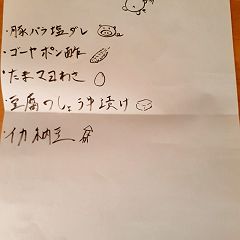 ・豚バラ塩ダレ
・ゴーヤポン酢
・たまヌヨわさ
・豆腐のしょう油漬け
・イカ納豆